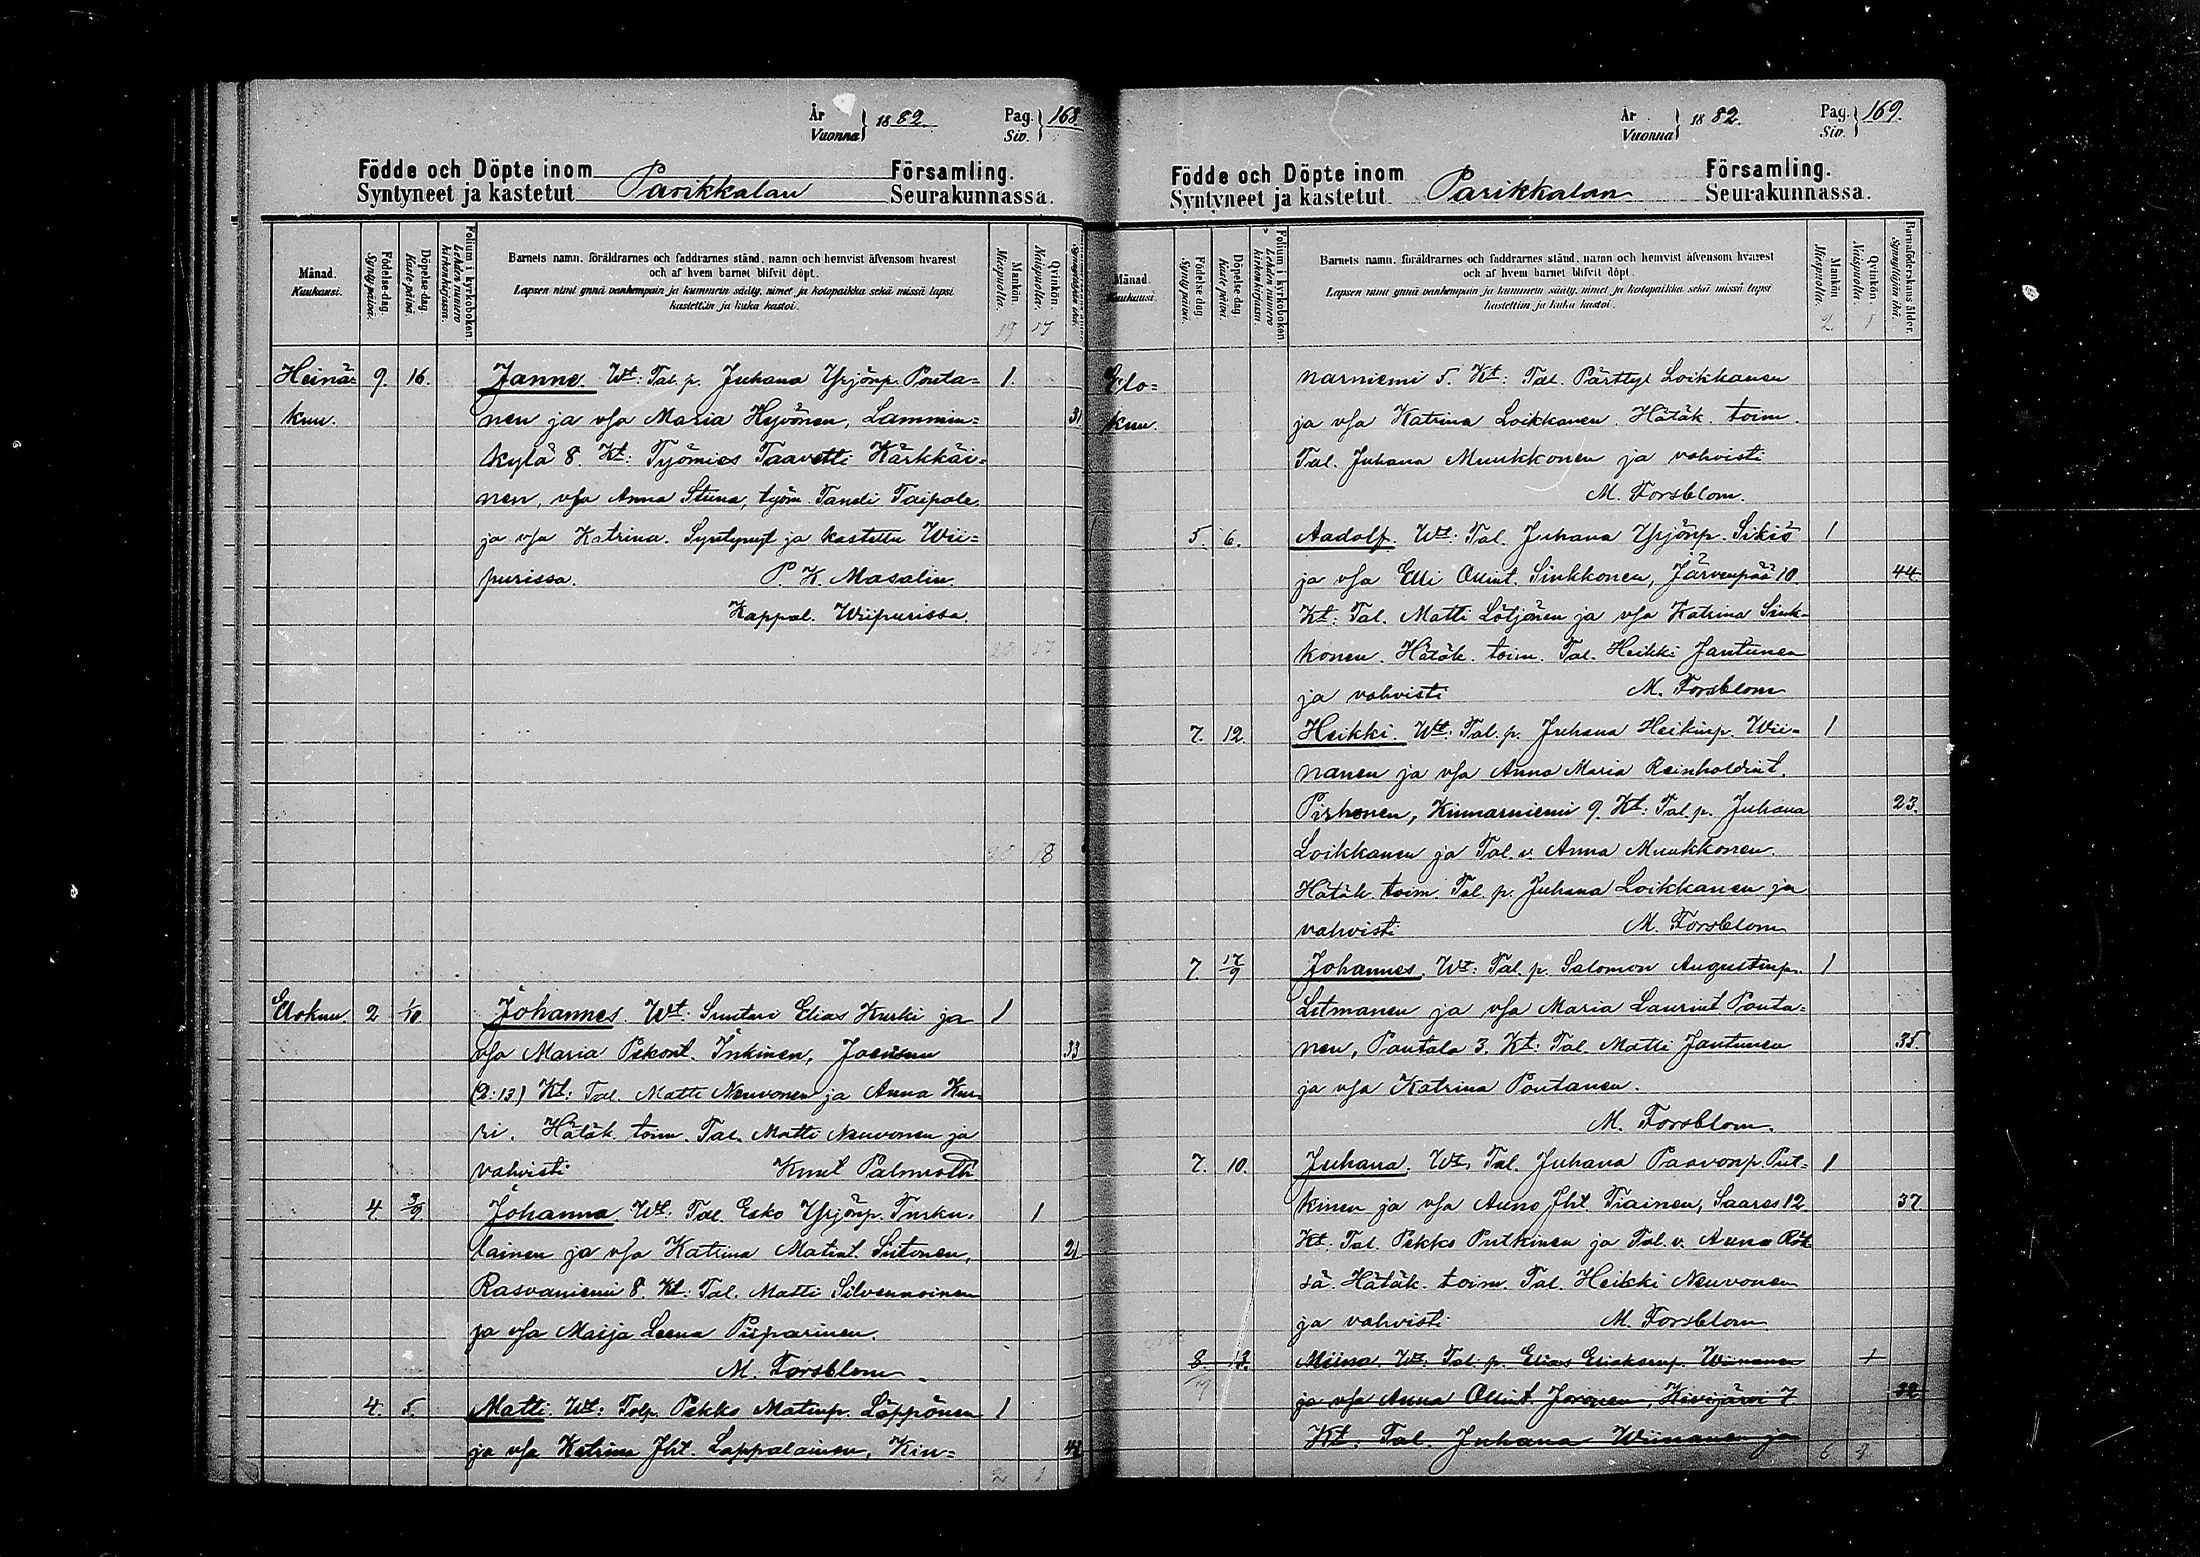 År
Vuonna } 1882.
Pag.
Siv. } 168
Födde och Döpte inom Församling.
Syntyneet ja kastetut Parikkalan Seurakunnassa.
Månad.
Kuukausi.
Födelse-dag.
Synty päivä.
Döpelse-dag
Kaste päivä.
Folium i kyrkoboken
Lehden numero
kirkonkirjassa.
Barnets namn, föräldrarnes och faddrarnes stånd, namn och hemvist äfvensom hvarest
och af hvem barnet blifvit döpt.
Lapsen nimi ynnä vanhempain ja kummein sääty, nimet ja kotopaikka sekä missä lapsi
kastettiin ja kuka kastoi.
Mankön.
Miespuolia.
Qvinkön.
Naispuolia.
19 17
Heinä= 9. 16. Janne. Wt: Tal. p. Juhana Yrjönp. Ponta= 1.
kuu. nen ja vsa Maria Hyvönen, Lammin= 31
kylä 8. Kt: Työmies Taavetti Kärkkäi=
nen, vsa Anna Stuna, työm. Taneli Taipale
ja vsa Katrina. Syntynyt ja kastettu Wii=
purissa. P. K. Masalin
Kappal. Wiipurissa.
18
Elokuu. 2 1/10 Johannes. Wt. Suutari Elias Kurki ja 1
vsa Maria Pekont. Inkinen, Joensuu 33
(2:13) Kt: Tal. Matti Neuvonen ja Anna Kur
ki. Hätäk. toim. Tal. Matti Neuvonen ja
vahvisti Knut Palmroth
4. 3/9. Johanna. Wt: Tal. Esko Yrjönp. Turku= 1
lainen ja vsa Katrina Matint. Sutonen, 21
Rasvaniemi 8. Kt: Tal. Matti Silvennoinen
ja vsa Maija Leena Piiparinen.
M. Forsblom
4. 5. Matti. Wt: Talp. Pekka Matinp. Läppönen 1
ja vsa Katrina Jht. Lappalainen, Kin=
2 1
År
Vuonna } 1882.
Pag.
Siv. } 169.
Födde och Döpte inom Församling.
Syntyneet ja kastetut Parikkalan Seurakunnassa.
Månad.
Kuukausi.
Födelse-dag
Synty päivä.
Döpelse-dag.
Kaste päivä.
Folium i kyrkoboken
Lehden numero
kirkonkirjassa.
Barnets namn, föräldrarnes och faddrarnes stånd, namn och hemvist äfvensom hvarest
och af hvem barnet blifvit döpt.
Lapsen nimi ynnä vanhempain ja kummein sääty, nimet ja kotopaikka sekä missä lapsi
kastettiin ja kuka kastoi.
Mankön
Miespuolia.
Qvinkön.
Naispuolia.
Barnaföderskans ålder.
Synnyttäjän ikä.
2 1
Elo= narniemi 5. Kt: Tal. Pärttyl Loikkanen
kuu. ja vsa Katrina Loikkanen. Hätäk. toim.
Tal. Juhana Muukkonen ja vahvisti
M. Forsblom.
5. 6. Aadolf. Wt. Tal. Juhana Yrjönp. Sikiö 1
ja vsa Elli Ollint. Sinkkonen, Järvenpää 10 44
Kt: Tal. Matti Lötjönen ja vsa Katrina Sink-
konen. Hätäk. toim. Tal. Heikki Jantunen
ja vahvisti M. Forsblom
7. 12. Heikki. Wt: Tal. p. Juhana Heikinp. Wii= 1
nanen ja vsa Anna Maria Reinholdint.
Pirhonen, Kinnarniemi 9. Kt: Tal. p. Juhana 23.
Loikkanen ja Tal. v. Anna Muukkonen.
Hätäk. toim. Tal. p. Juhana Loikkanen ja
vahvisti M. Forsblom
7. 17/9 Johannes. Wt: Tal. p. Salomon Augustinp. 1
Litmanen ja vsa Maria Laurint Ponta=
nen, Pautala 3. Kt: Tal. Matti Jantunen 35.
ja vsa Katrina Pontanen.
M. Forsblom.
7. 10. Juhana. Wt. Tal. Juhana Paavonp. Put= 1
kinen ja vsa Anna Jht Tiainen, Saares 12. 37.
Kt. Tal. Pekka Putkinen ja Tal. v. Anna Röt
sä. Hätäk. toim. Tal. Heikki Neuvonen
ja vahvisti M. Forsblom
8 13. Miina. Wt. Tal. p. Elias Eliaksenp. Wiinanen 1
ja vsa Anna Ollint. Joronen, Kivijärvi 7 32
Kt. Tal. Juhana Wiinanen ja
6